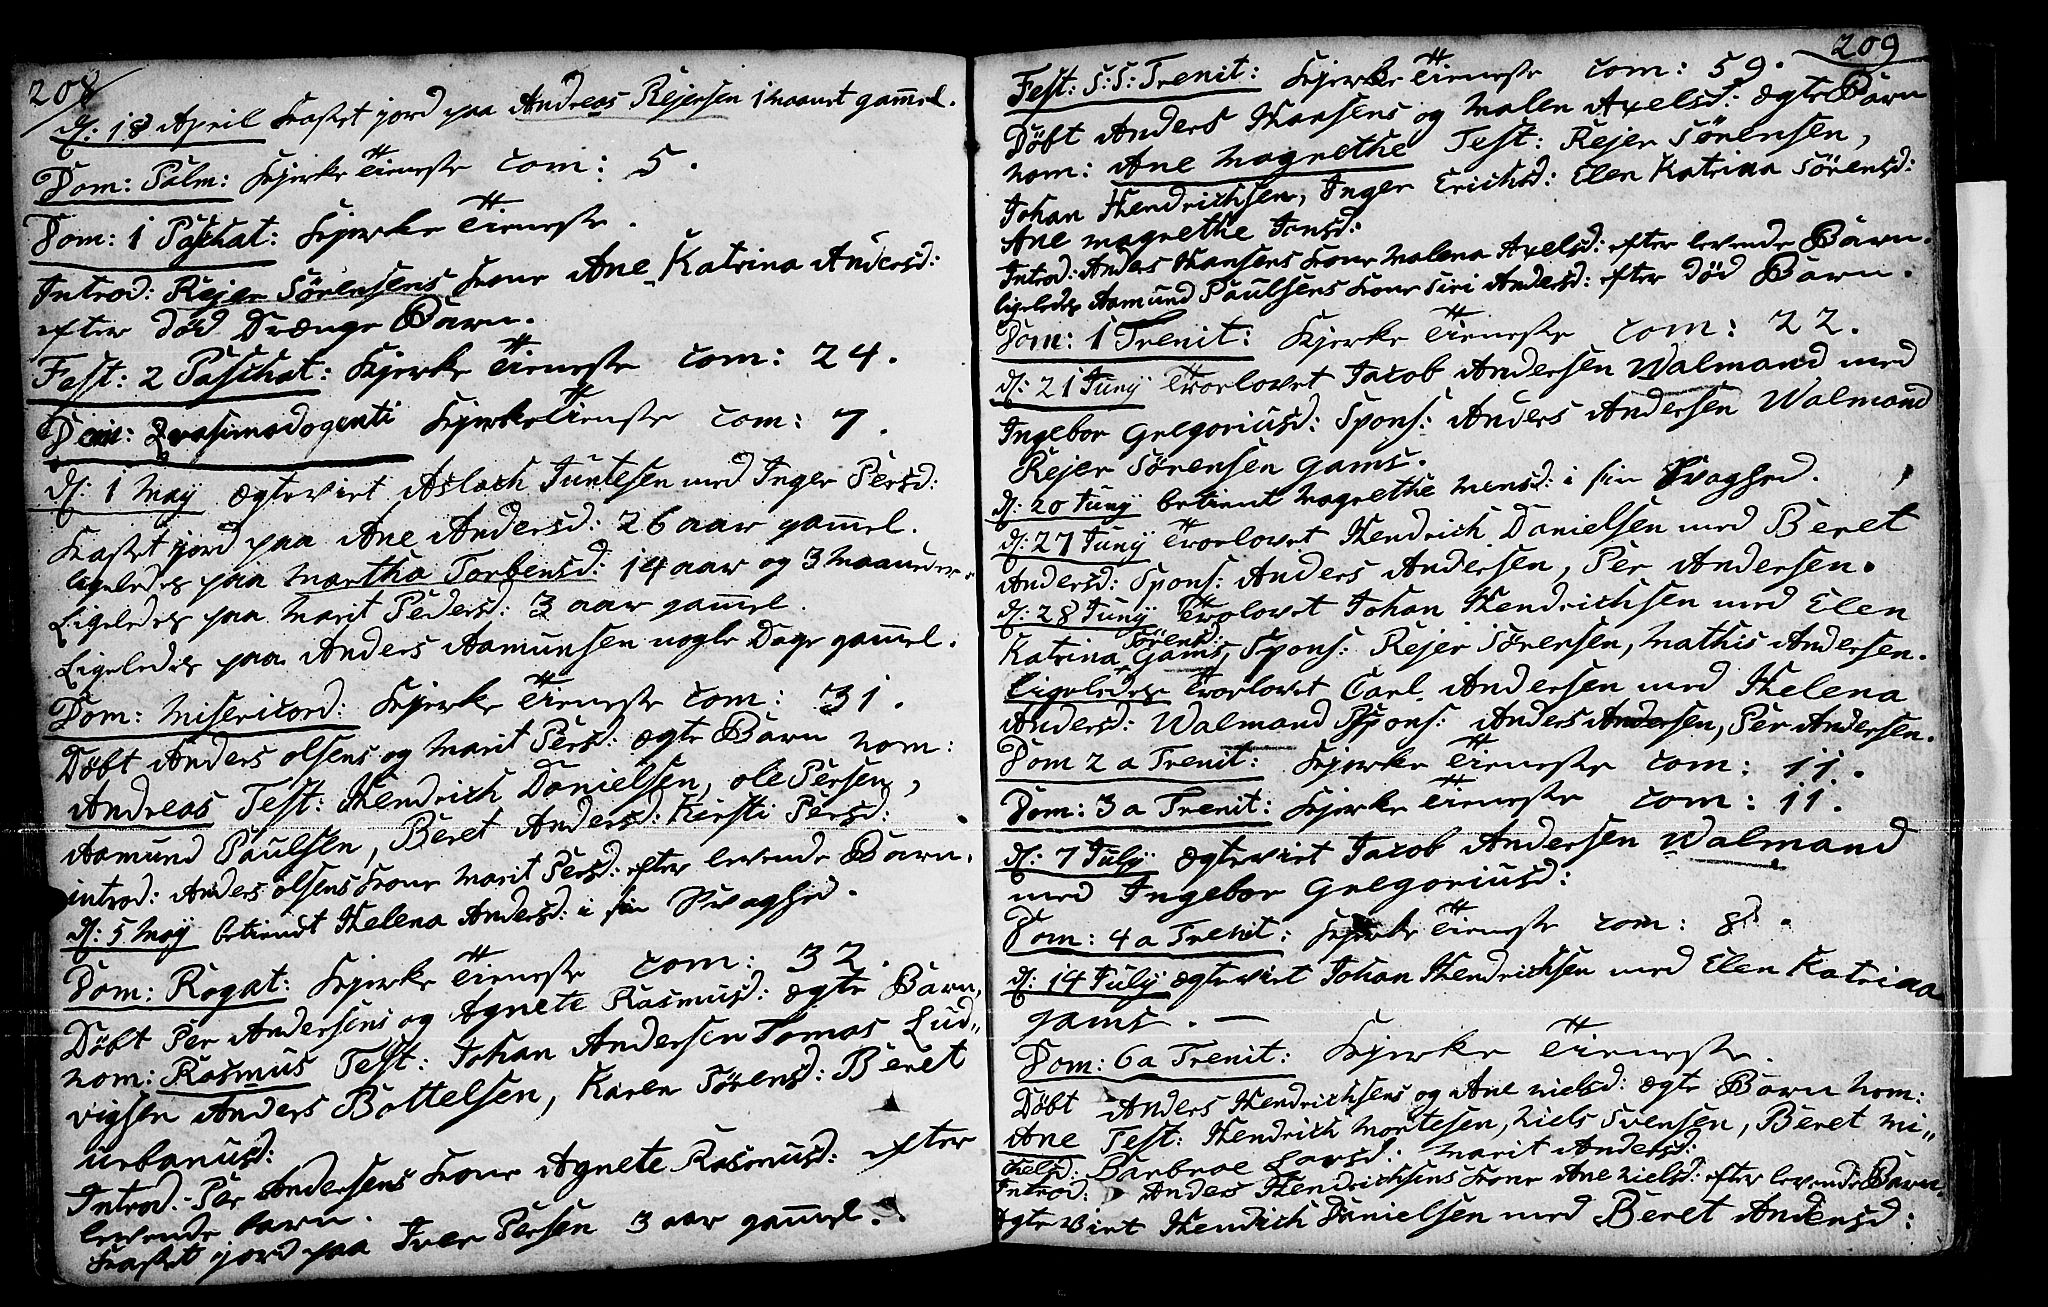 208
d: 18 April Kastet jord paa Andreas Rejersen 1 maanet gam̄el.
Dom: Palm: Kjerke Tieneste com: 5.
Dom: 1 Paschat: Kjerke Tieneste.
Introd: Rejer Sörensens Kone Ane Katrina Andersd:
efter död Drænge Barn.
Fest: 2 Paschat: Kjerke Tieneste com: 24.
Dom: Qvasimodogenti Kjerke Tieneste com: 7.
d: 1 May ægteviet Aslach Juntesen med Inger Persd:
Kastet jord paa Ane Andersd: 26 aar gam̄el.
ligeledes paa Martha Torbensd: 14 aar og 3 Maaneder.
Ligeledes paa Marit Pedersd: 3 aar gam̄el.
Ligeledes paa Anders Aamunsen nogle Dage gam̄el.
Dom: Misericord: Kjerke Tieneste com: 31.
Döbt Anders Olsens og Marit Persd: ægte Barn nom:
Andreas Test: Hendrich Danielsen, Ole Persen,
Aamund Paulsen, Beret Andersd: Kirsti Persd:
introd: Anders Olsens Kone Marit Persd: efter levende Barn.
d: 5 May betient Helena Andersd: i sin Svaghed.
Dom: Rogat: Kjerke Tieneste com: 32.
Döbt Per Andersens og Agnete Rasmusd: ægte Barn,
nom: Rasmus Test: Johan Andersen Tomas Lud„
vigsen Anders Bottelsen, Karen Sörensd: Beret
urbanusd:
Introd: Per Andersens Kone Agnete Rasmusd: efter
levende barn.
Kastet jord paa Iver Persen 3 aar gam̄el.
209
Fest: S:S: Trenit: Kjerke Tieneste com: 59.
Döbt Anders Hansens og Malen Axelsd: ægte Barn
nom: Ane Magrethe Test: Rejer Sörensen,
Johan Hendrichsen, Inger Erichsd: Elen Katrina Sörensd:
Ane Magrethe Jonsd:
Introd: Anders Hansens Kone Malena Axelsd: efter levende Barn.
ligeledes Aamund Paulsens Kone Siri Andersd: efter död Barn.
Dom: 1 Trenit: Kjerke Tieneste com: 22.
d: 21 Juny Trorlovet Jacob Andersen Walmand med
Ingebor Gregoriusd: Spons: Anders Andersen Walmand
Rejer Sörensen Gams.
d: 20 Juny betient Magrethe Monsd: i sin Svaghed.
d: 27 Juny Trorlovet Hendrich Danielsen med Beret
Andersd: Spons: Anders Andersen, Per Andersen.
d: 28 Juny Trolovet Johan Hendrichsen med Elen
Katrina Sörensd: Gams, Spons: Rejer Sörensen, Mathis Andersen.
Ligeledes Trorlovet Carl Andersen med Helena
Andersd: Walmand Spons: Anders Andersen, Per Andersen.
Dom 2 a Trenit: Kjerke Tieneste com: 11.
Dom: 3 a Trenit: Kjerke Tieneste com: 11.
d: 7 July ægteviet Jacob Andersen Walmand
med Ingebor Gregoriusd:
Dom: 4 a Trenit: Kjerke Tieneste com: 8.
d: 14 July ægteviet Johan Hendrichsen med Elen Katrina
Gams. —
Dom: 6 a Trenit: Kjerke Tieneste.
Döbt Anders Hendrichsens og Ane Nielsd: ægte Barn nom:
Ane Test: Hendrich Mortesen, Niels Svensen, Beret Mi„
chelsd: Barbroe Larsd: Marit Andersd:
Introd: Anders Hendrichsens Kone Ane Nielsd: efter levende Barn.
ægteviet Hendrich Danielsen med Beret Andersd: